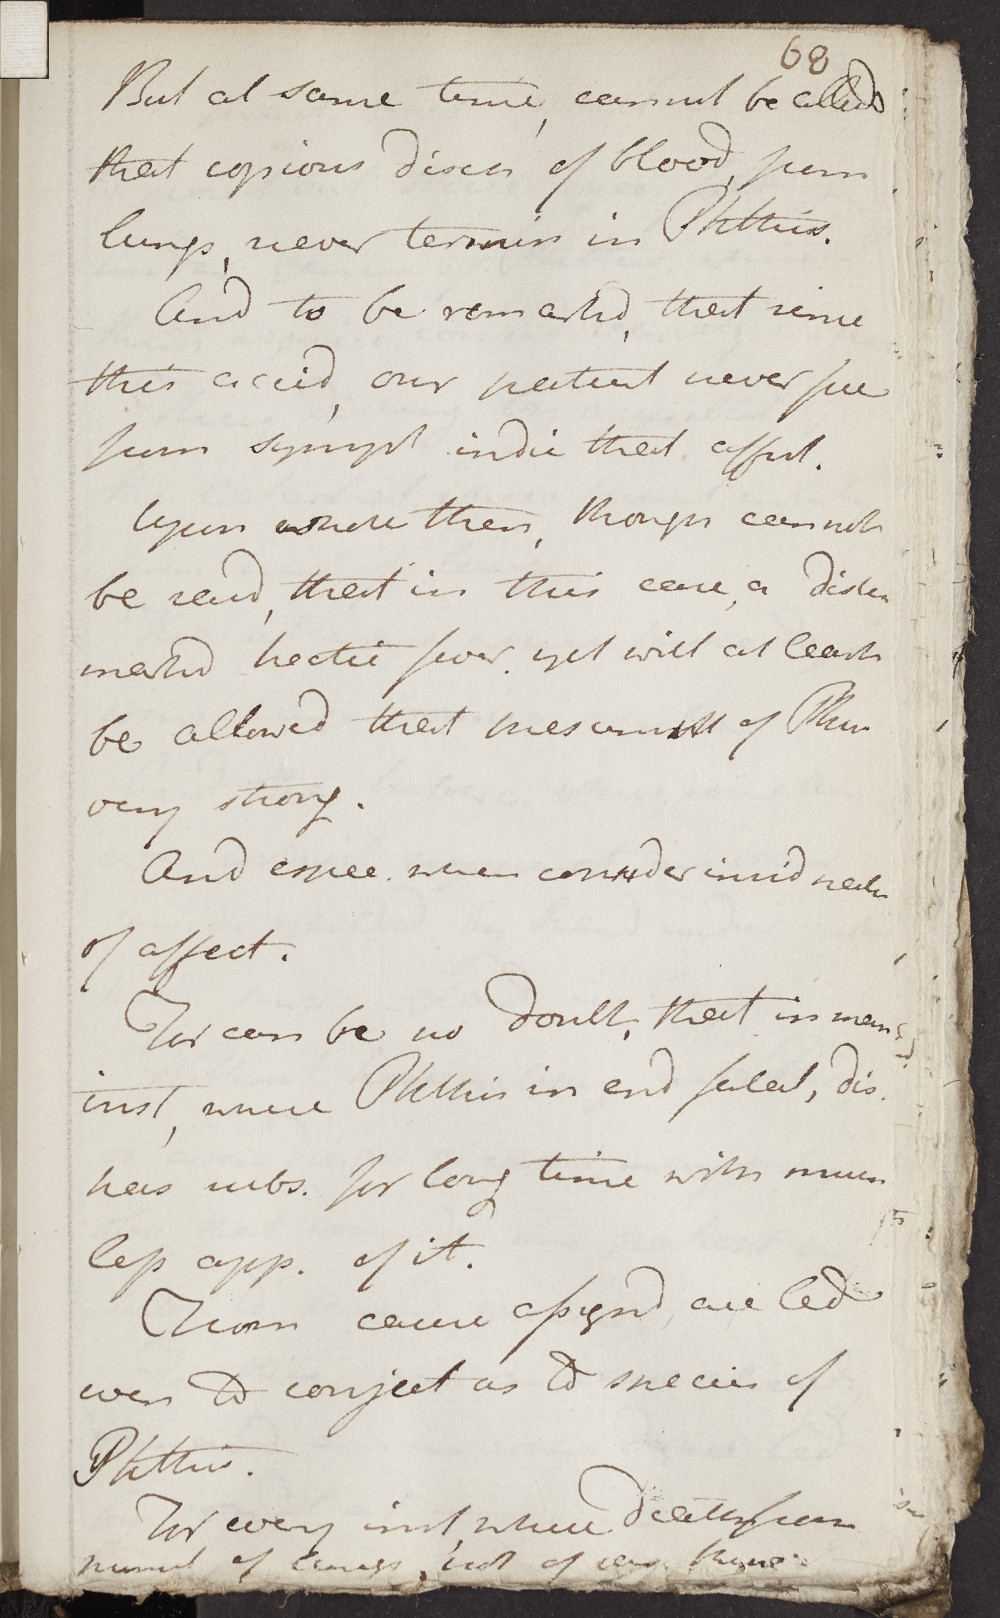 68
But at same time, cannot be alled
that copious disch of blood, from
lungs, never termin in Phthisis.
And to be remarkd, that since
this accid, our patient never free
from sympt indic that affect.
Upon whole then, though cannot
be said, that in this case, a distin
markd hectic fever. yet will at least
be allowed that presumpt of Phthis
very strong.
And espec. when consider insid
of affect.
For can be no doubt, that in man
inst, where Phthisis in end fatal, dis.
has subs. for long time with much
less app. of it.
From cause assignd, are led
even to conject as to species of
Phthisis.
For every inst where death from
of lungs, not of very